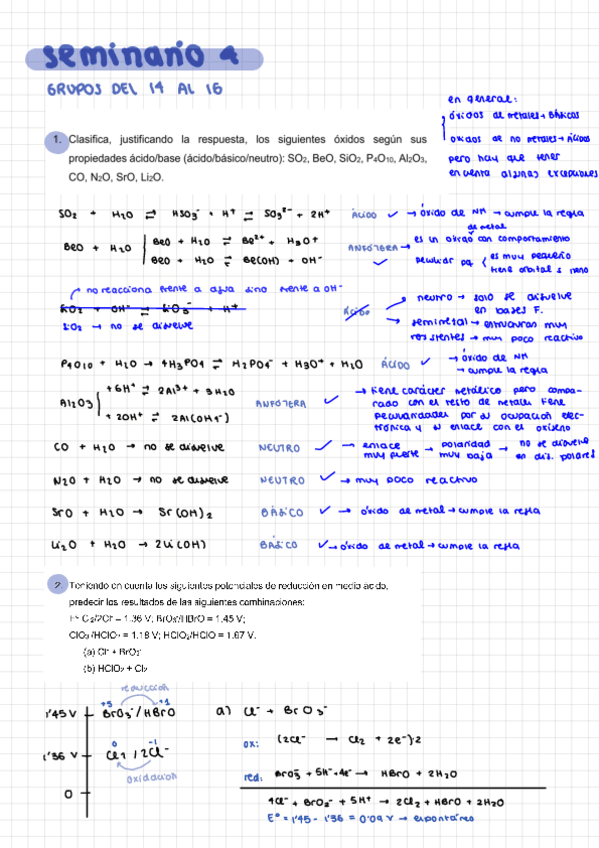 seminario 4
GRUPOS DEL 14 AL 16
en general:
óxidos de metales → BÁSICOS
óxidos de no metales → ÁCIDOS
pero hay que tener
en cuenta algunas excepciones
1. Clasifica, justificando la respuesta, los siguientes óxidos según sus
propiedades ácido/base (ácido/básico/neutro): SO₂, BeO, SiO₂, P₄O₁₀, Al₂O₃,
CO, N₂O, SrO, Li₂O.
SO₂ + H₂O ⇌ HSO₃⁻ + H⁺ ⇌ SO₃²⁻ + 2H⁺ ÁCIDO ✓ → óxido de NM → cumple la regla
BeO + H₂O
BeO + H₂O ⇌ Be²⁺ + H₃O⁺
BeO + H₂O ⇌ Be(OH) + OH⁻
ANFÓTERA → es un óxido con comportamiento
de metal
✓ peculiar pq
es muy pequeño
tiene orbital s lleno
no reacciona frente a agua sino frente a OH⁻
SiO₂ + OH⁻ → SiO₃⁻ + H⁺ ácido
SiO₂ → no se disuelve
neutro → solo se disuelve
en bases F.
semimetal → estructuras muy
resistentes → muy poco reactivo
P₄O₁₀ + H₂O → 4H₃PO₄ ⇌ H₂PO₄⁻ + H₃O⁺ + H₂O ÁCIDO ✓ → óxido de NM
→ cumple la regla
Al₂O₃
+ 6H⁺ ⇌ 2Al³⁺ + 3H₂O
+ 2OH⁻ ⇌ 2Al(OH₄⁻)
ANFÓTERA ✓
→ tiene carácter metálico pero compa-
rado con el resto de metales tiene
peculiaridades por su ocupación elec-
trónica y su enlace con el oxígeno
CO + H₂O → no se disuelve NEUTRO ✓ → enlace muy fuerte → polaridad muy baja → no se disuelve en dis. polares
N₂O + H₂O → no se disuelve NEUTRO ✓ → muy poco reactivo
SrO + H₂O → Sr(OH)₂ BÁSICO ✓ → óxido de metal → cumple la regla
Li₂O + H₂O → 2Li(OH) BÁSICO ✓ → óxido de metal → cumple la regla
2. Teniendo en cuenta los siguientes potenciales de reducción en medio ácido,
predecir los resultados de las siguientes combinaciones:
Eº Cl₂/2Cl⁻ = 1.36 V; BrO₃⁻/HBrO = 1.45 V;
ClO₃⁻/HClO₂ = 1.18 V; HClO₂/HClO = 1.67 V.
(a) Cl⁻ + BrO₃⁻
(b) HClO₂ + Cl₂
reducción
+5 +1
1'45 V BrO₃⁻/HBrO
0 -1
1'36 V Cl₂/2Cl⁻
oxidación
0
a) Cl⁻ + BrO₃⁻
ox: (2Cl⁻ → Cl₂ + 2e⁻)·2
red: BrO₃⁻ + 5H⁺ + 4e⁻ → HBrO + 2H₂O
4Cl⁻ + BrO₃⁻ + 5H⁺ → 2Cl₂ + HBrO + 2H₂O
Eº = 1'45 - 1'36 = 0'09 V → espontáneo